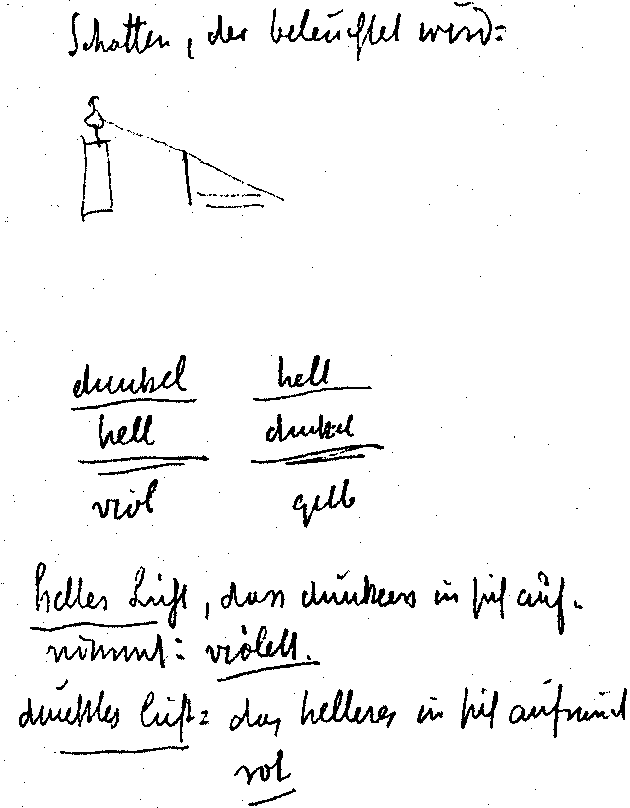 Schatten, der beleuchtet wird:
dunkel hell
hell dunkel
viol gelb
helles Licht, dass dunkleres in sich auf-
nimmt: violett.
dunkles Licht: das helleres in sich aufnimmt
rot